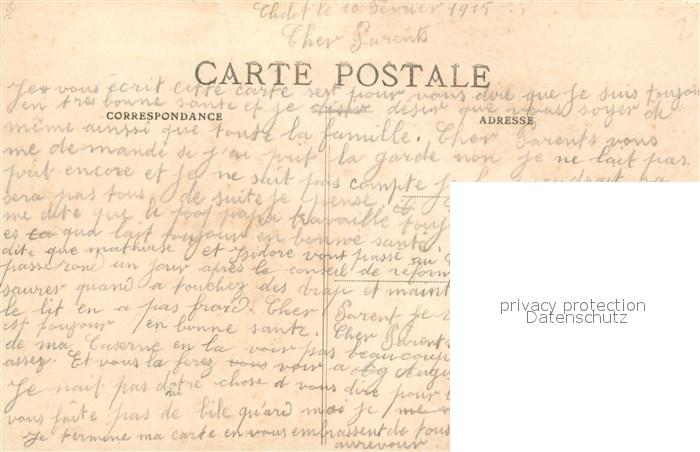 Cholet le 10 Février 1915
Cher Parents
CARTE POSTALE
Je vous écrit cette carte se pour vous dire que je suis toujour
en tres bonne sante et je desir que vous soyer de
CORRESPONDANCE
ADRESSE
même ainssi que toute la famille. Cher Parents vous
me de mandé si j'ai prit la garde non je ne lait pas
prit encore et je ne sait pas compte
sera pas tous de suite je pense.
me dite que le papa travaille
es qua lait toujour en bonne santé.
dite que mathuise et Isidore vont passé au
passeront un jour après le conseil de reform
quand a touchez des drap et maint
le lit en a pas froid. Cher Parent je
est toujour en bonne sante. Cher Parent
de ma Caserne en la voir pas beaucoup
assez. Et vous la ferez voir a Augu
Je nait pas dotre chose a vous dire pour
vous faite pas de bile quand moi je
Je termine ma carte en vous embrassent de tous
aurevoir.
privacy protection
Datenschutz